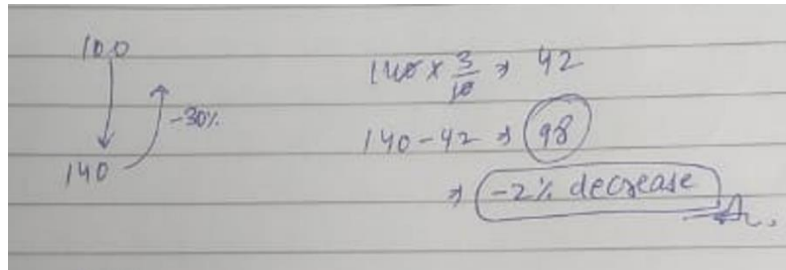 100
-30%
140
140 × 3/10 → 42
140-42 → 98
→ -2% decrease